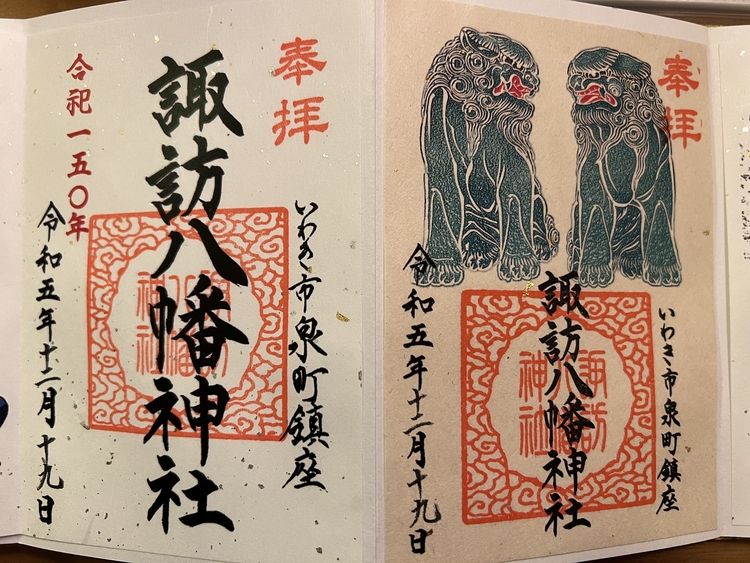 奉拝
いわき市泉町鎮座
諏訪八幡神社
合祀一五〇年
令和五年十二月十九日
奉拝
いわき市泉町鎮座
諏訪八幡神社
諏訪
神社
令和五年十二月十九日